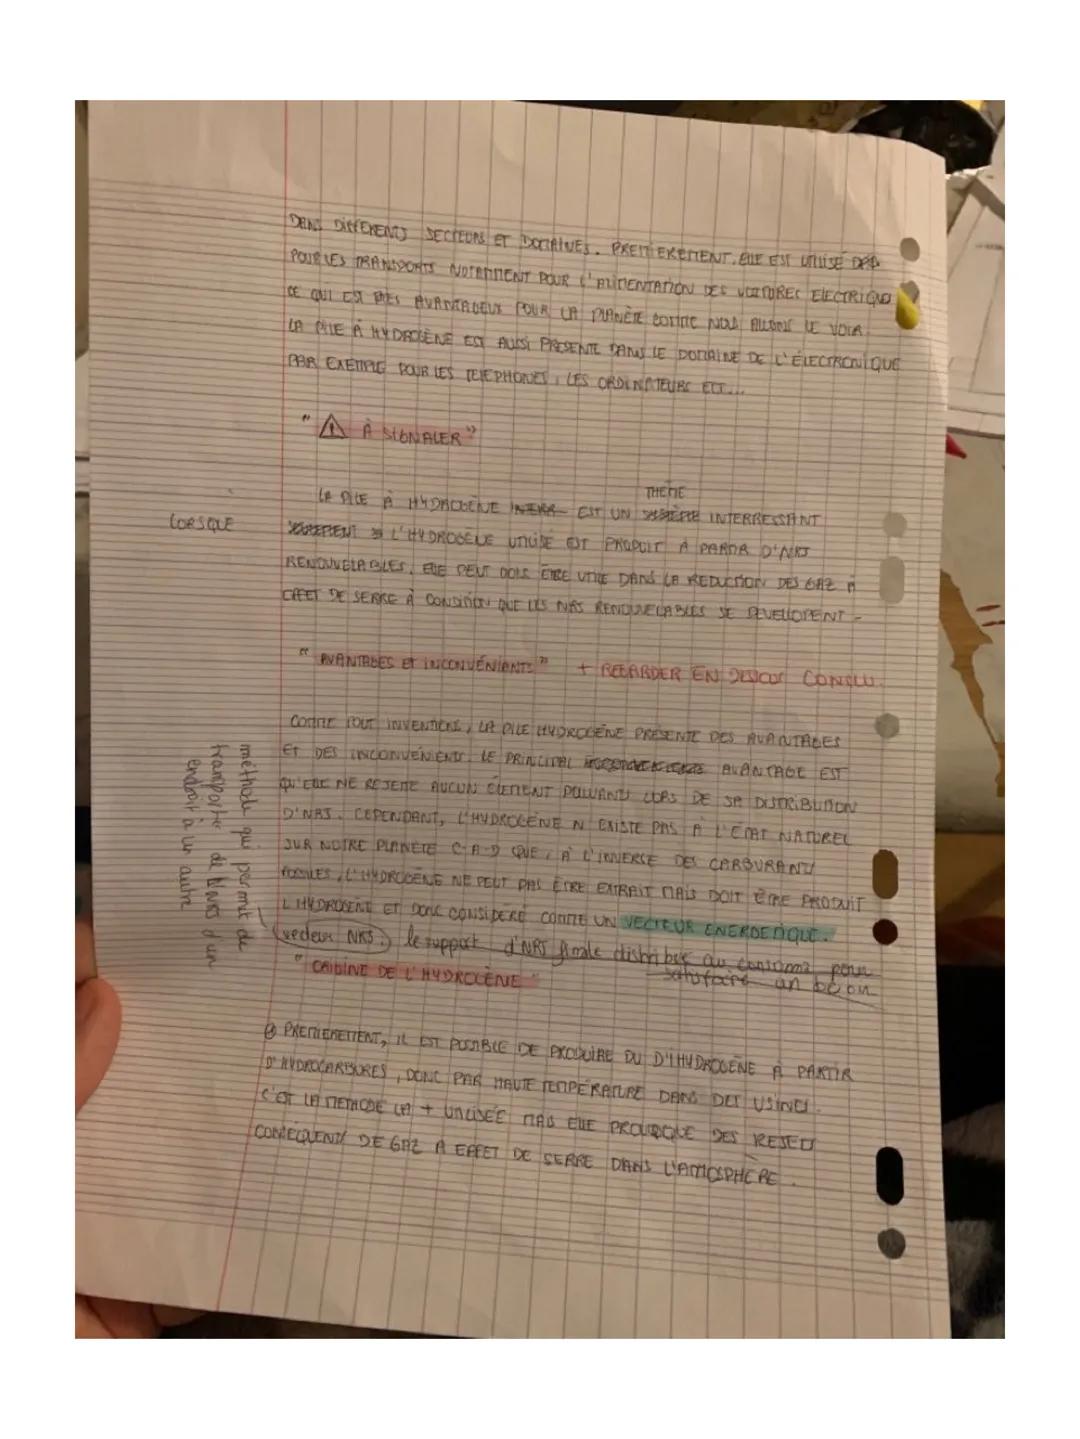 DANS DIFFERENTS SECTEURS ET DOMAINES. PREMIEREMENT, ELLE EST UTILISÉ
POUR LES TRANSPORTS NOTAMMENT POUR L'ALIMENTATION DES VOITURES ELECTRIQUE
CE QUI EST TRES AVANTAGEUX POUR LA PLANÈTE COMME NOUS ALLONS LE VOIR.
LA PILE À HYDROGÈNE EST AUSSI PRESENTE DANS LE DOMAINE DE L'ÉLECTRONIQUE
PAR EXEMPLE POUR LES TELEPHONES, LES ORDINATEURS ECT...
" ⚠ À SIGNALER "
THEME
LA PILE À HYDROGÈNE EST UN INTERRESSANT
LORSQUE
L'HYDROGÈNE UTILISE EST PRODUIT À PARTIR D'NRS
RENOUVELABLES. ELLE PEUT DONC ÊTRE UTILE DANS LA REDUCTION DES GAZ À
EFFET DE SERRE À CONDITION QUE LES NRS RENOUVELABLES SE DEVELLOPENT -
" AVANTAGES ET INCONVÉNIANTS " + REGARDER EN DESSOUS CONCLU.
COMME TOUT INVENTIONS, LA PILE HYDROGÈNE PRÉSENTE DES AVANTAGES
ET DES INCONVENIENTS. LE PRINCIPAL AVANTAGE EST
QU'ELLE NE REJETTE AUCUN ÉLEMENT POLLUANTS LORS DE SA DISTRIBUTION
D'NRS. CEPENDANT, L'HYDROGÈNE N EXISTE PAS À L'ÉTAT NATUREL
SUR NOTRE PLANÈTE C-A-D QUE, À L'INVERSE DES CARBURANTS
FOSSILES, L'HYDROGENE NE PEUT PAS ÊTRE EXTRAIT MAIS DOIT ÊTRE PRODUIT
L'HYDROGÈNE ET DONC CONSIDERÉ COMME UN VECTEUR ENERGETIQUE.
vecteur NRS : le support d'NRS finale distribué au consomm. pour
satisfaire un besoin
méthode qui permet de
transporte de l'NRS d'un
endroit à un autre
" ORIGINE DE L'HYDROGÈNE "
PREMIEREMENT, IL EST POSSIBLE DE PRODUIRE DU D'IHYDROGÈNE À PARTIR
D'HYDROCARBURES, DONC PAR HAUTE TEMPÉRATURE DANS DES USINES.
C'EST LA METHODE LA + UTILISÉE MAIS ELLE PROVOQUE DES REJETS
CONSÉQUENTS DE GAZ A EFFET DE SERRE DANS L'ATMOSPHÈRE.